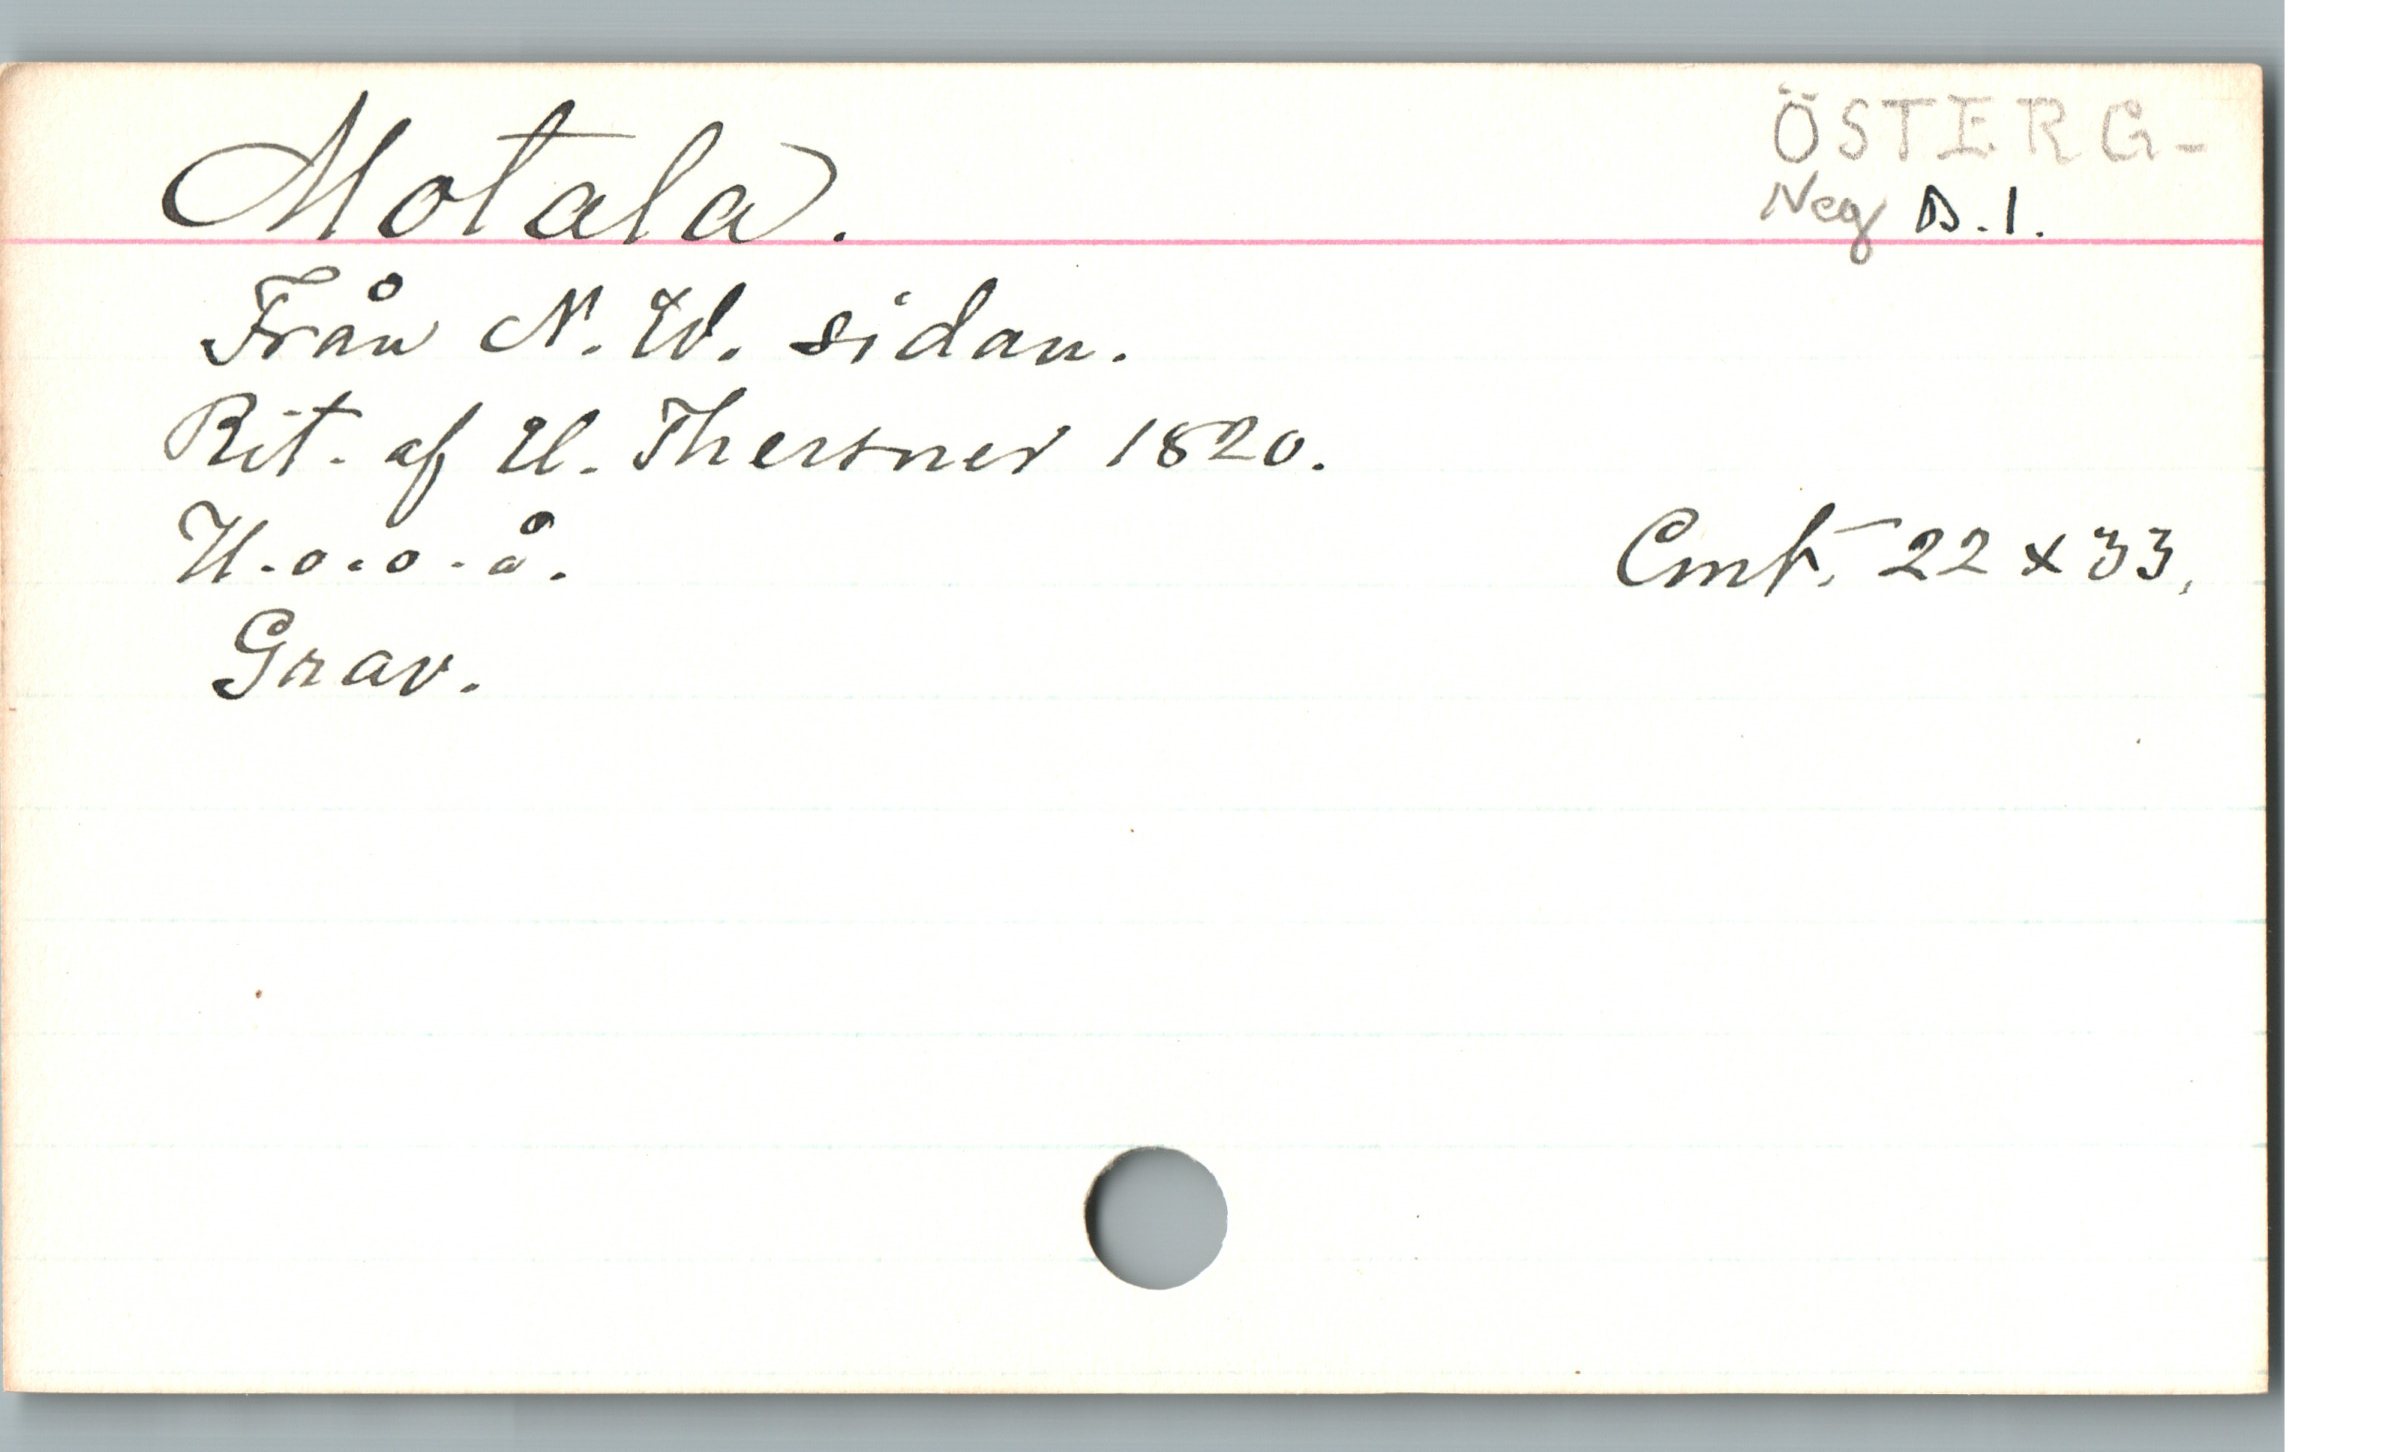 Motala.
ÖSTERG-
Neg D.1.
Från N. W. sidan.
Rit. af U. Thersner 1820.
U.o.o.å.
Cmt. 22 x 33.
Grav.